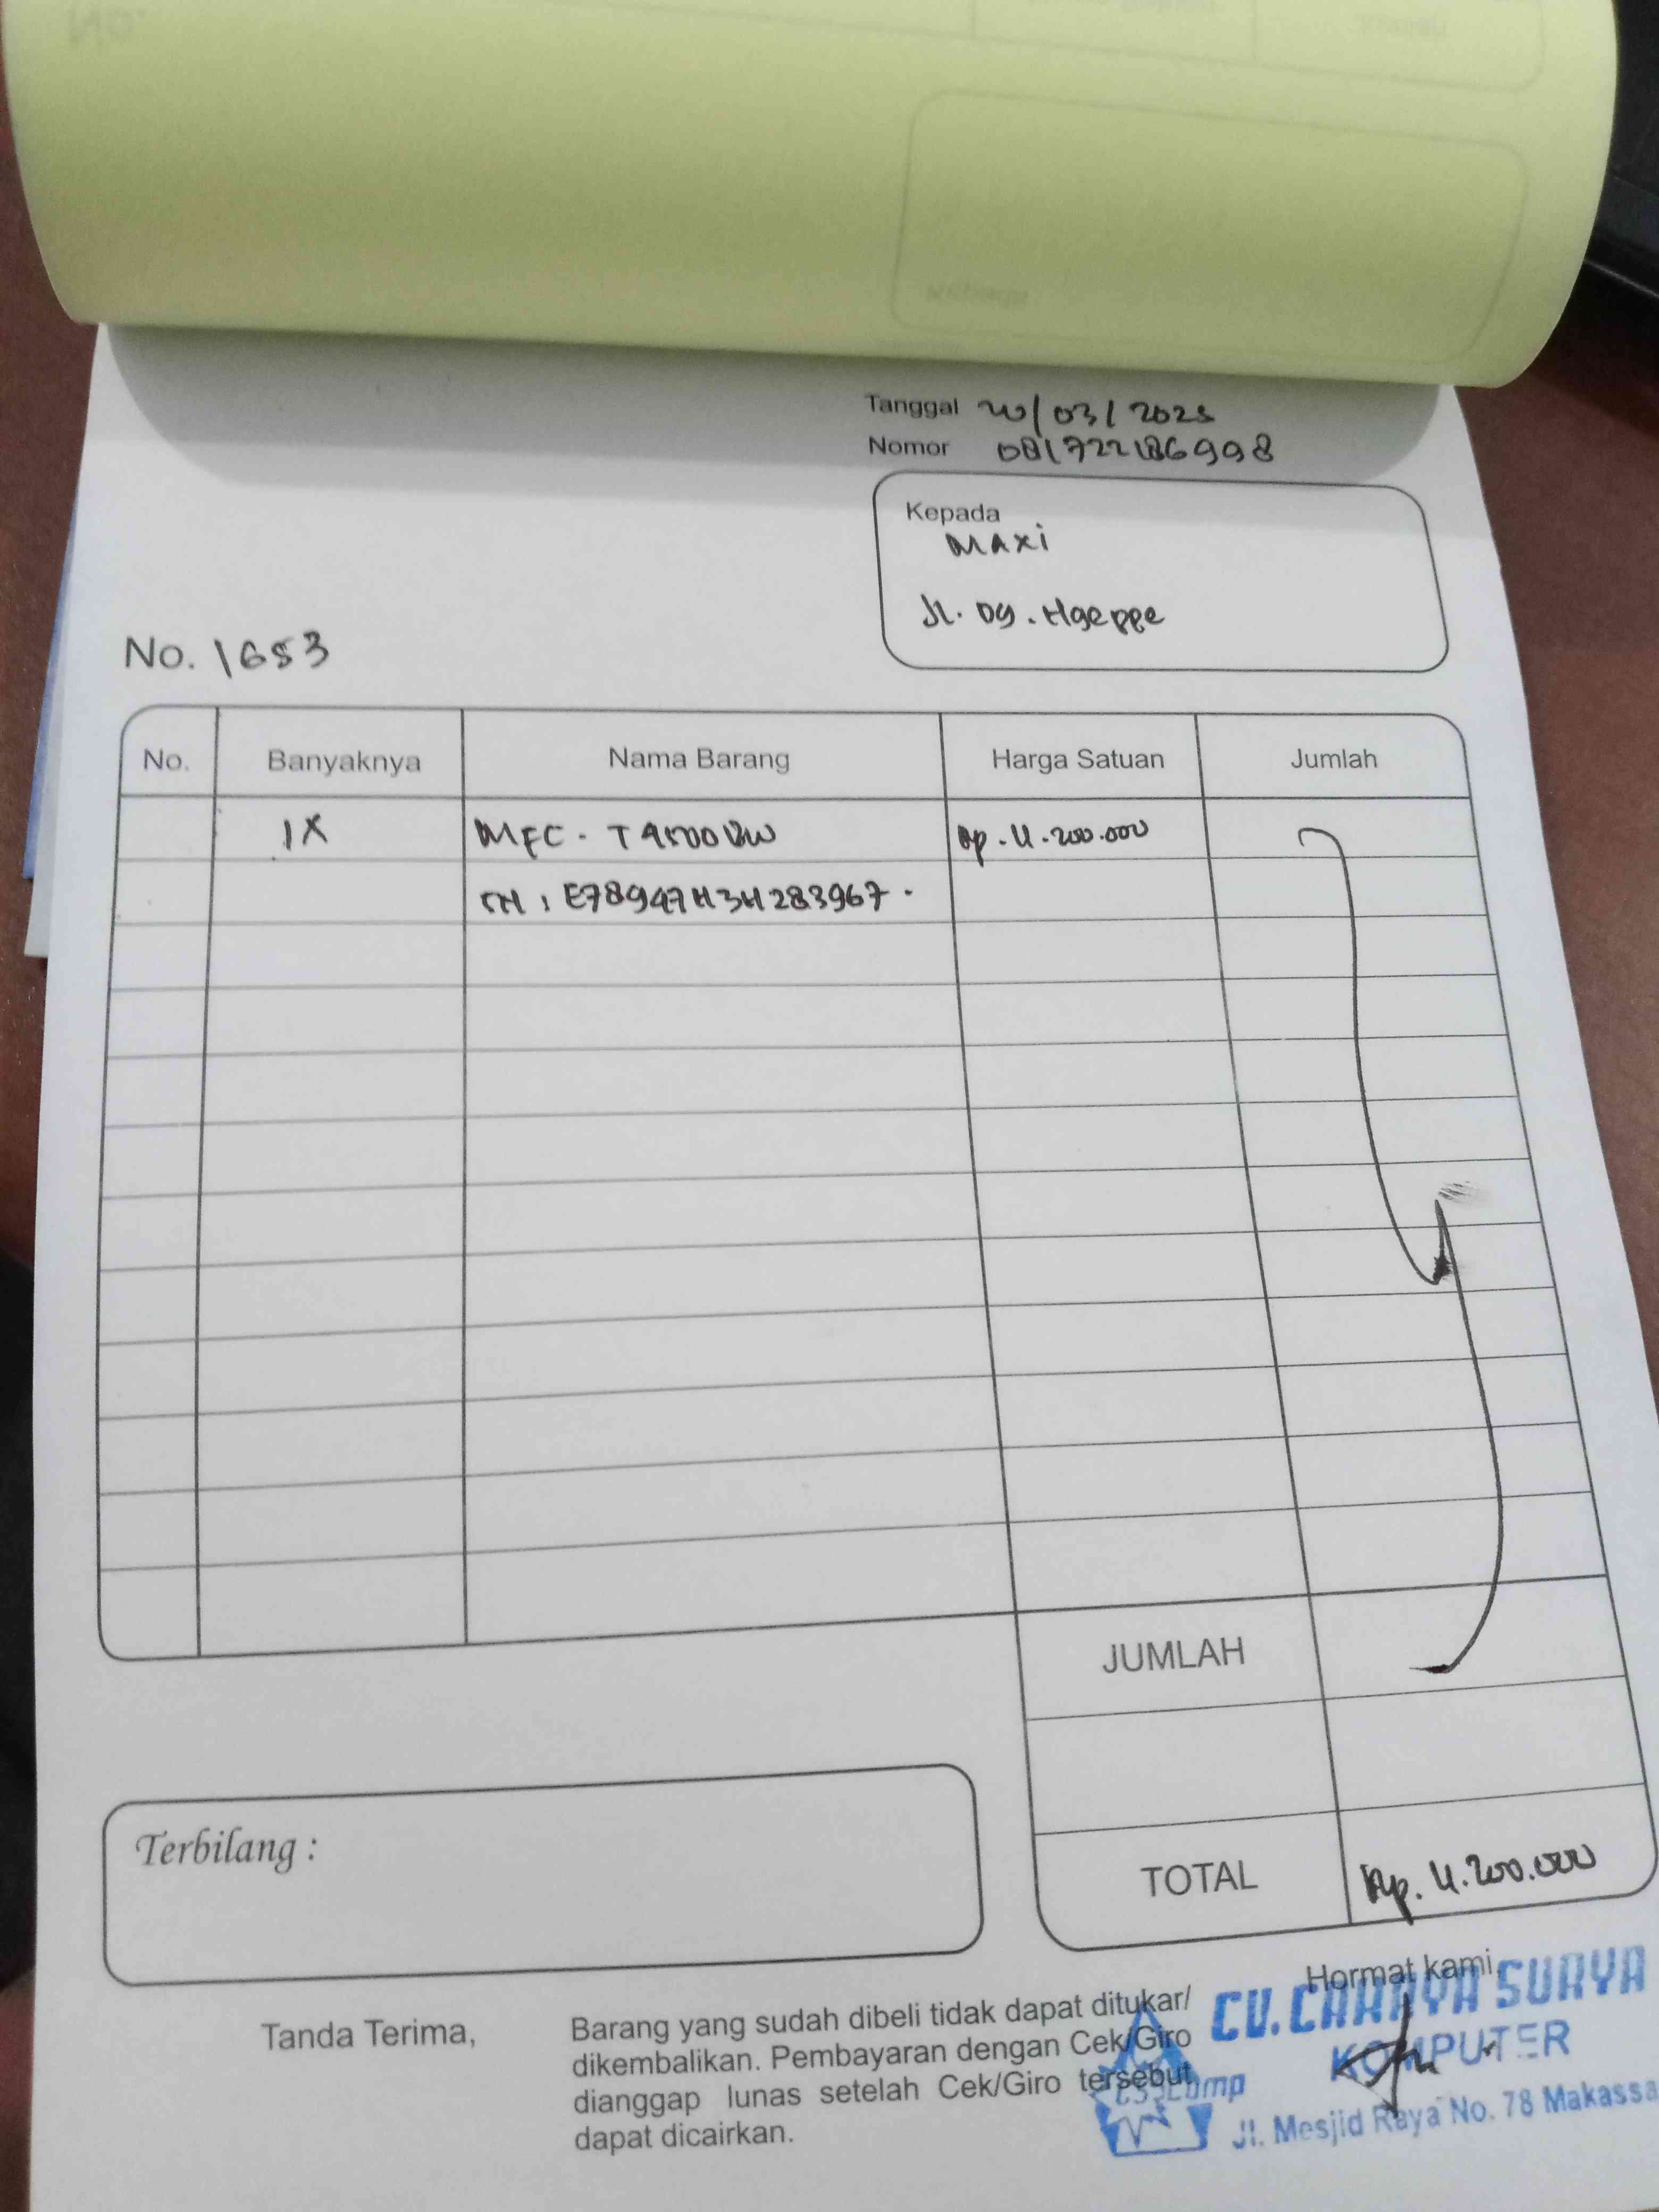 Tanggal 20/03/2025
Nomor 081722186998
Kepada
MAXi
Jl. Dg. Ngeppe
No. 1653
No. Banyaknya Nama Barang Harga Satuan Jumlah
1X MFC - T4500DW Rp. 4.200.000
SN : E78947H3H283967.
JUMLAH
Terbilang :
TOTAL Rp. 4.200.000
Hormat kami,
CV. CAHAYA SURYA
KOMPUTER
Jl. Mesjid Raya No. 78 Makassa
Tanda Terima,
Barang yang sudah dibeli tidak dapat ditukar/
dikembalikan. Pembayaran dengan Cek/Giro
dianggap lunas setelah Cek/Giro tersebut
dapat dicairkan.